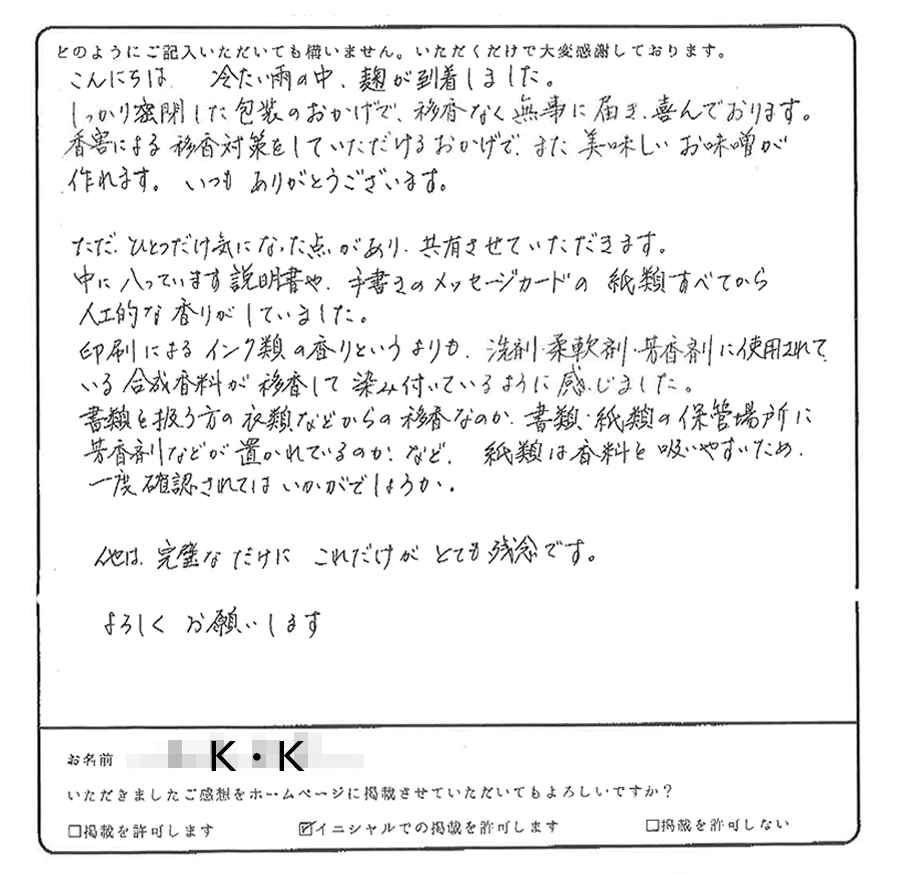 どのようにご記入いただいても構いません。いただくだけで大変感謝しております。
こんにちは 冷たい雨の中、麹が到着しました。
しっかり密閉した包装のおかげで、移香なく無事に届き、喜んでおります。
香害による移香対策をしていただけるおかげで、また美味しいお味噌が
作れます。いつもありがとうございます。
ただ、ひとつだけ気になった点があり、共有させていただきます。
中に入っています説明書や、手書きのメッセージカードの紙類すべてから
人工的な香りがしていました。
印刷によるインク類の香りというよりも、洗剤・柔軟剤・芳香剤に使用されて
いる合成香料が移香して染み付いているように感じました。
書類を扱う方の衣類などからの移香なのか、書類・紙類の保管場所に
芳香剤などが置かれているのか、など、紙類は香料を吸いやすいため、
一度確認されてはいかがでしょうか。
他は、完璧なだけにこれだけがとても残念です。
よろしくお願いします
お名前 K・K
いただきましたご感想をホームページに掲載させていただいてもよろしいですか?
□掲載を許可します ☑イニシャルでの掲載を許可します □掲載を許可しない